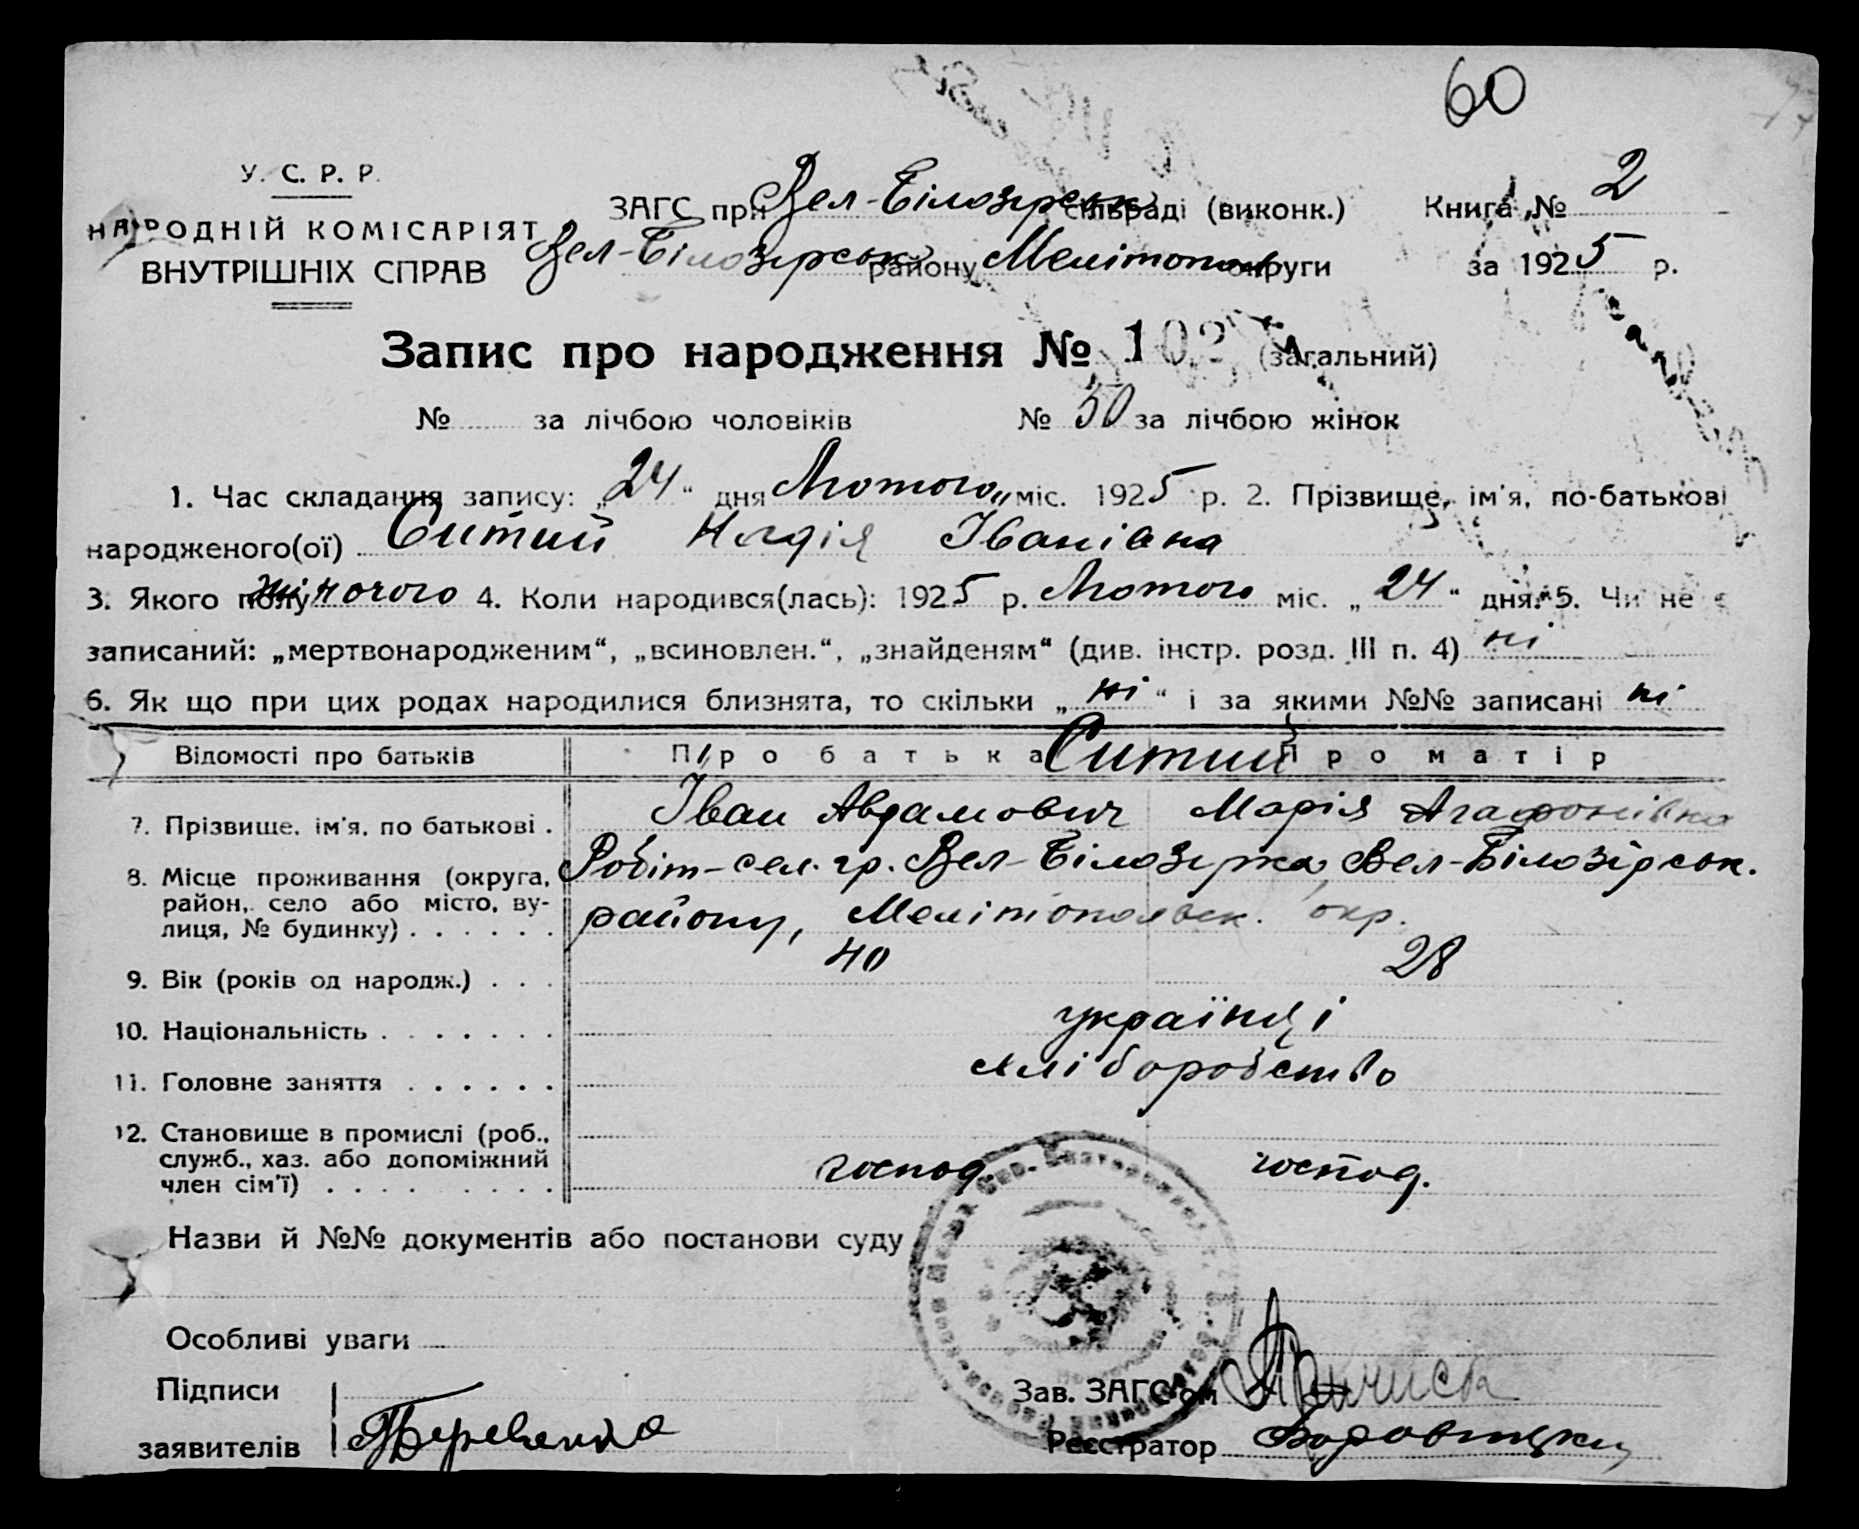 60
У. С. Р. Р.
НАРОДНІЙ КОМІСАРІЯТ
ВНУТРІШНІХ СПРАВ
ЗАГС при Вел-Білозірськ співраді (виконк.)
Вел-Білозірськ району Мелітопол округи
Книга № 2
за 1925 р.
Запис про народження № 102 (загальний)
№ за лічбою чоловіків № 50 за лічбою жінок
1. Час складання запису: „24“ дня Лютого міс. 1925 р. 2. Прізвище, ім'я, по-батькові
народженого(ої) Ситий Надія Іванівна
3. Якого полу жіночого 4. Коли народився(лась): 1925 р. Лютого міс. „24“ дня. 5. Чи не є
записаний: „мертвонародженим“, „всиновлен.“, „знайденям“ (див. інстр. розд. III п. 4) ні
6. Як що при цих родах народилися близнята, то скільки „ні“ і за якими №№ записані ні
Відомості про батьків Про батька Ситий Про матір
7. Прізвище, ім'я, по батькові . Іван Авдамович Марія Агафонівна
8. Місце проживання (округа, Робіт-сел. гр. Вел-Білозірка, Вел-Білозірськ.
район, село або місто, ву-
лиця, № будинку) . . . . . . району, Мелітопольськ. окр.
9. Вік (років од народж.) . . . 40 28
10. Національність . . . . . . . українці
11. Головне заняття . . . . . . хліборобство
12. Становище в промислі (роб.,
служб., хаз. або допоміжний господ. господ.
член сім'ї) . . . . . . . . .
Назви й №№ документів або постанови суду
Особливі уваги
Підписи
заявителів
Зав. ЗАГС'ом
Реєстратор